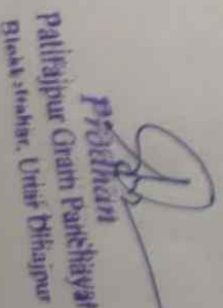 Prodhan
Patirajpur Gram Panchayat
Block:Itahar, Uttar Dinajpur